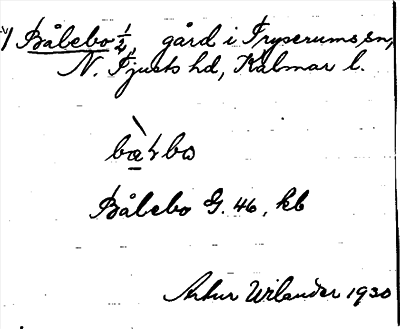 Bålebo 1/2, gård i Tryserums sn,
N. Tjusts hd, Kalmar l.
Bålebo G. 46, kb
Artur Wilander 1930